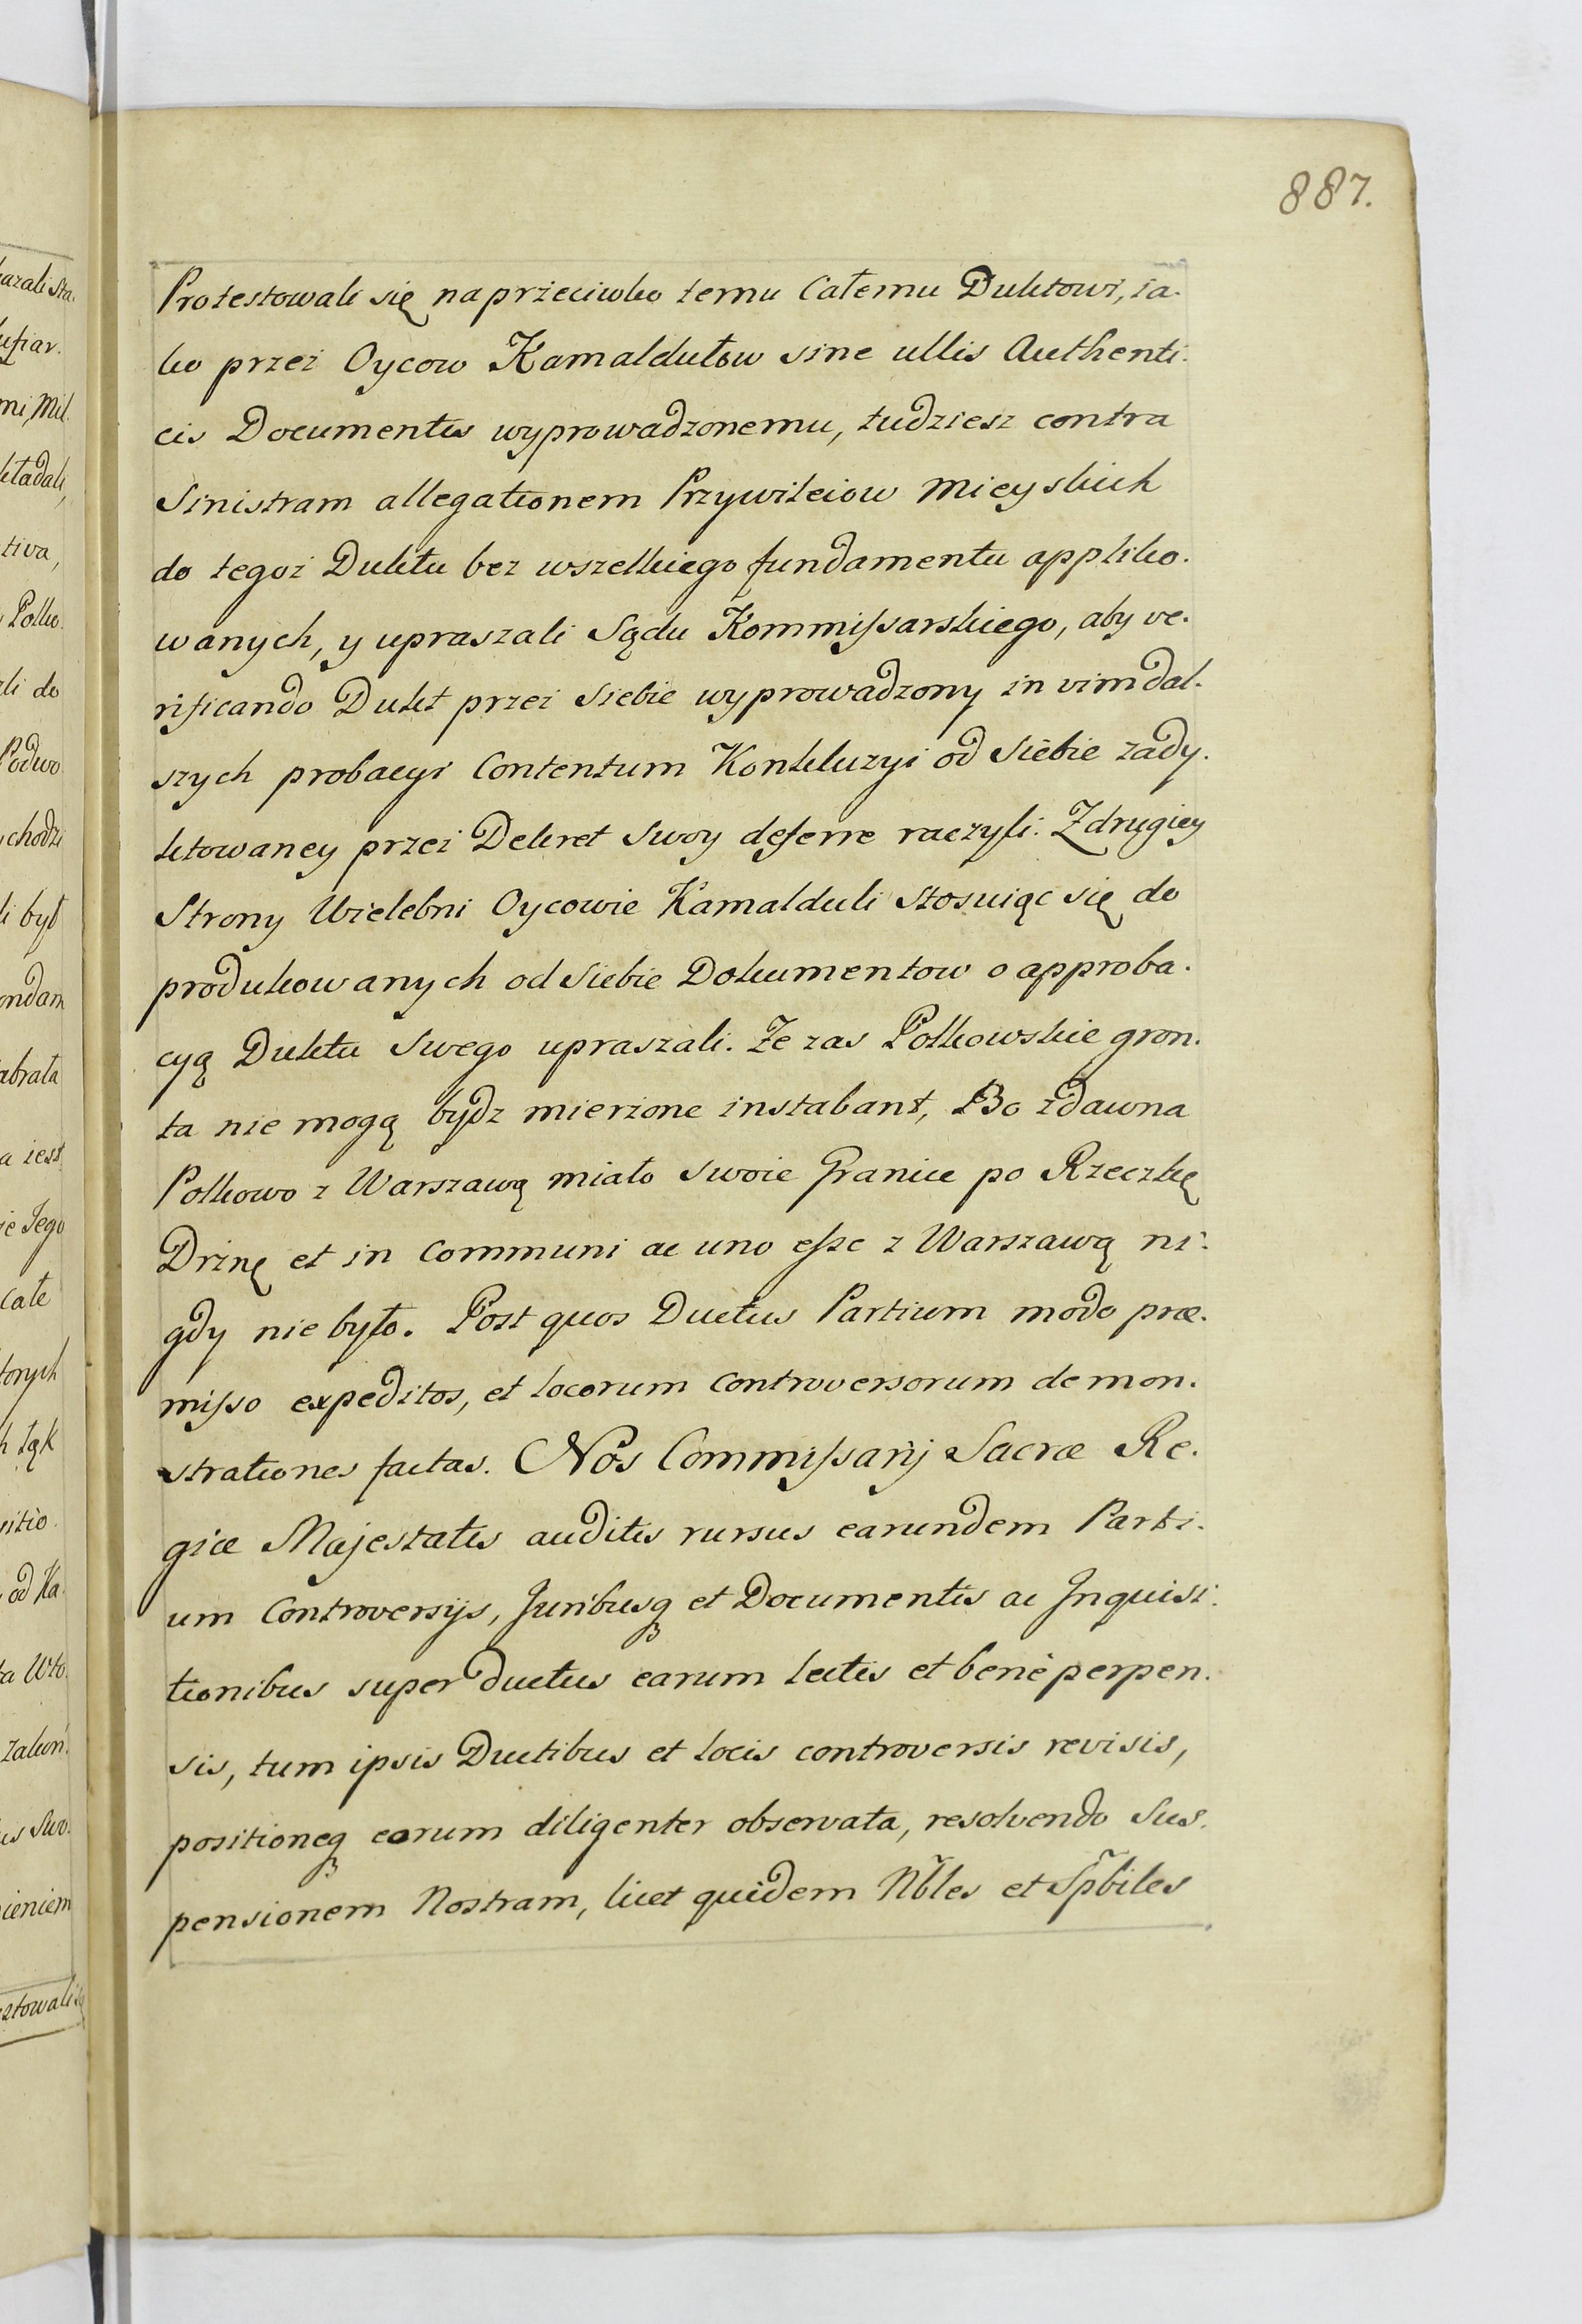 887.
Protestowali się naprzeciwko temu Całemu Duktowi, ia-
ko przez Oycow Kamaldułow sine ullis Authenti-
cis Documentis wyprowadzonemu, tudziesz contra
Sinistram allegationem Przywileiow Mieyskich
do tegoż Duktu bez wszelkiego fundamentu appliko-
wanych, y upraszali Sądu Kommissarskiego, aby ve-
rificando Dukt przez Siebie wyprowadzony in vim dal-
szych probacyi Contentum Konkluzyi od Siebie zady-
ktowaney przez Dekret Swoy deferre raczyli. Zdrugiey
Strony Wielebni Oycowie Kamalduli Stosuiąc się do
produkowanych od Siebie Dokumentow o approba-
cyą Duktu Swego upraszali. Że zas Polkowskie gron-
ta nie mogą bydz mierzone instabant, Bo zdawna
Polkowo z Warszawą miało Swoie Granice po Rzeczkę
Drżnę et in Communi ac uno esse z Warszawą ni-
gdy nie było. Post quos Ductus Partium modo præ-
misso expeditos, et locorum controversorum demon-
strationes factas. Nos Commissarij Sacræ Re-
giæ Majestatis auditis rursus earundem Parti-
um Controversijs, Juribusq et Documentis ac Inquisi-
tionibus super ductus earum lectis et benè perpen-
sis, tum ipsis Ductibus et locis controversis revisis,
positioneq eorum diligenter observata, resolvendo Sus-
pensionem Nostram, licet quidem Nbles et Spbiles